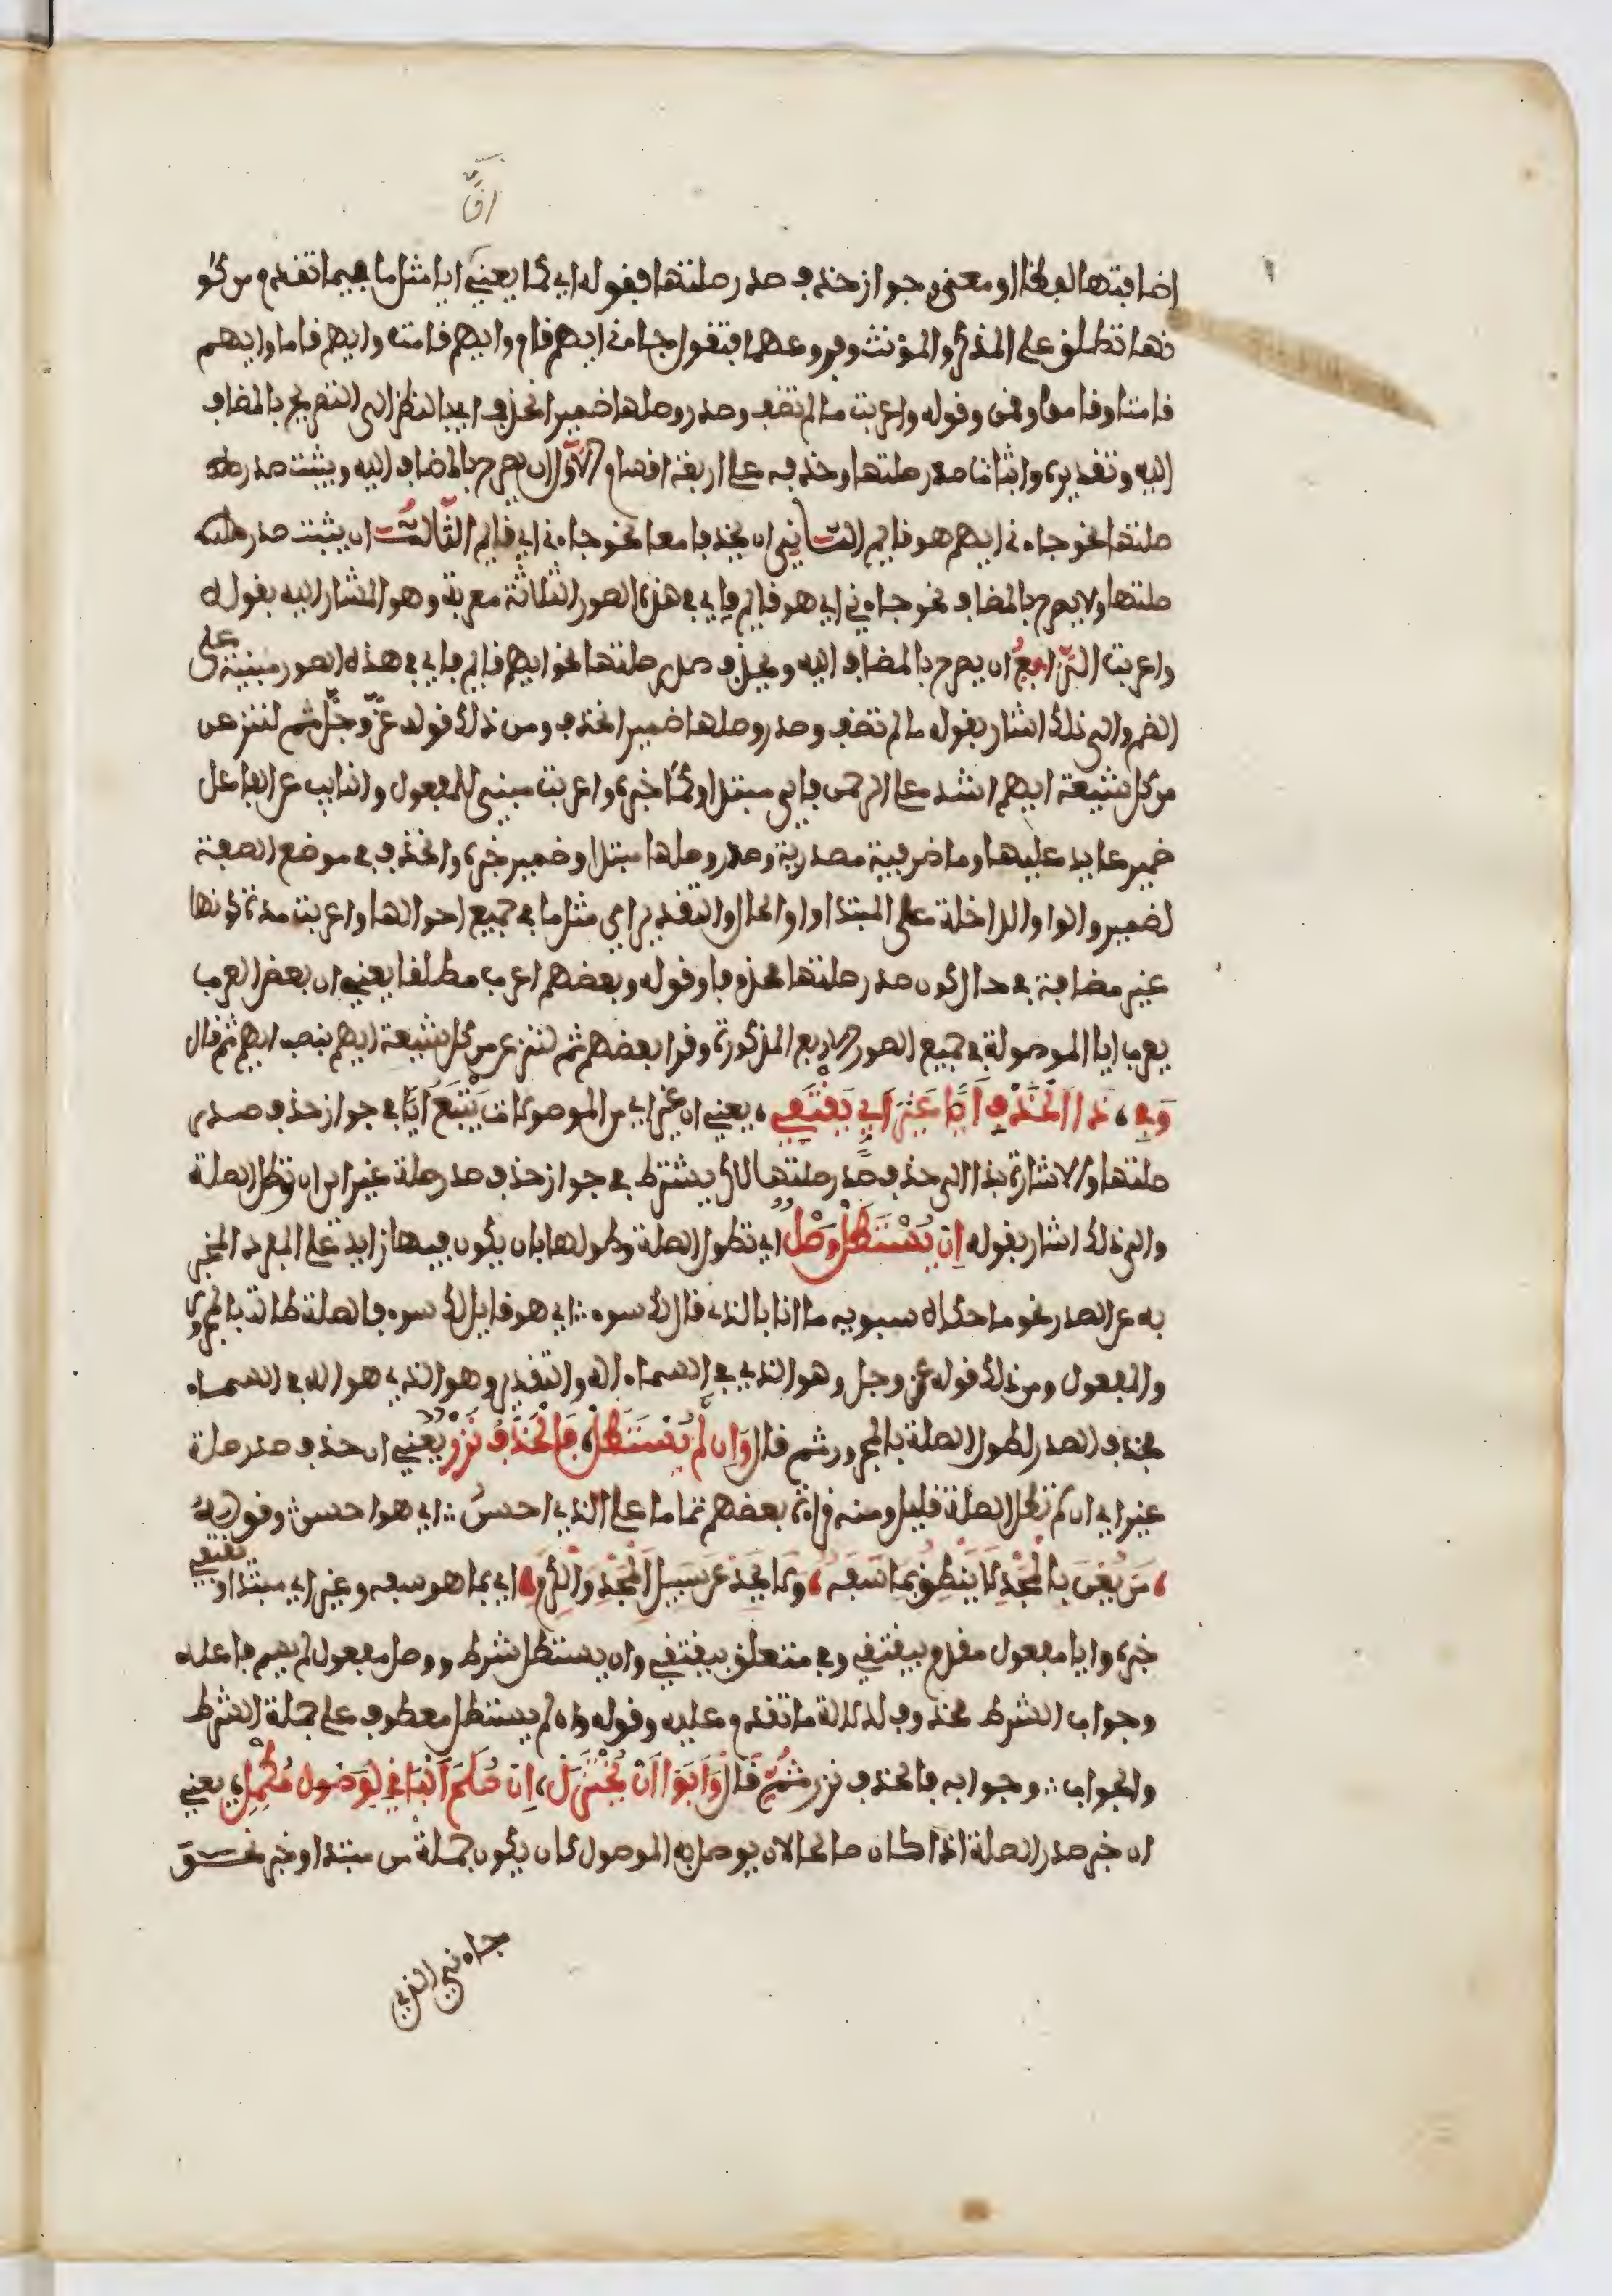 اضافتها لفظا او معنى وجواز حذف صدر صلتها فقوله اي كما يعني ايا مثل ما فيما تقدم من كو
نها تطلق على المذكر والمؤنث وفروعهما فتقول جاءني ايهم قام وايهم قامت وايهم قاما وايهم
قامتا وقاموا وقمن وقوله واعربت ما لم تضف وصدر وصلها ضمير انحذف اي بالنظر الى التصريح بالمضاف
اليه وتقديره واثبات صدر صلتها وحذفه على اربعة اقسام الاول ان يصرح بالمضاف اليه ويثبت صدر
صلتها نحو جاءني ايهم هو قايم الثاني ان يحذفا معا نحو جاءني اي قايم الثالث ان يثبت صدر
صلتها ولا يصرح بالمضاف نحو جاءني اي هو قايم فاي في هذه الصور الثلاثة معربة وهو المشار اليه بقوله
واعربت الرابع ان يصرح بالمضاف اليه ويحذف صدر صلتها نحو ايهم قايم فاي في هذه الصور مبنية على
الضم والى ذلك اشار بقوله ما لم تضف وصدر وصلها ضمير انحذف ومن ذلك قوله عز وجل ثم لننزعن
من كل شيعة ايهم اشد على الرحمن فاي مبتدا وكما خبره واعربت مبني للمفعول والنايب عن الفاعل
ضمير عايد عليها وما ظرفية مصدرية وصدر وصلها مبتدا وضمير خبره وانحذف في موضع الصفة
لضمير والواو الداخلة على المبتدا واو الحال والتقدير اي مثل ما في جميع احوالها واعربت مدة كونها
غير مضافة في حال كون صدر صلتها محذوفا وقوله وبعضهم اعرب مطلقا يعني ان بعض العرب
يعرب ايا الموصولة في جميع الصور الاربع المذكورة وقرا بعضهم ثم لننزعن من كل شيعة ايهم بنصب ايهم ثم قال
وَفِي، ذا الحَذْفِ اَيًّا غَيْرُ اَيٍّ يَقْتَفِي، يعني ان غير اي من الموصولات يَتْبَعُ اَيًّا في جواز حذف صدر
صلتها والاشارة بذا الى حذف صدر صلتها لكن يشترط في جواز حذف صدر صلة غير اي ان تطول الصلة
والى ذلك اشار بقوله اِنْ يُسْتَطَلْ وَصْلٌ اي تطول الصلة وطولها بان يكون فيها زايد على المفرد المخبر
به عن الصدر نحو ما حكاه سيبويه ما انا بالذي قايل لك سوء اي هو قايل لك سوء فالصلة طالت بالمجرور
والمفعول ومن ذلك قوله عز وجل وهو الذي في السماء اله والتقدير وهو الذي هو اله في السماء
فحذف الصدر لطول الصلة بالمجرور ثم قال وَاِن لَمْ يُسْتَطَلْ، فَالْحَذْفُ نَزْرٌ يعني ان حذف صدر صلة
غير اي ان لم تطل الصلة قليل ومنه قراءة بعضهم تماما على الذي احسنُ اي هو احسن وقوله
، مَن يُعْنَ بِالْحَمْدِ لا يَنْطِقْ بِمَا سَفَهٌ، وَلا يَحِدْ عَن سَبِيلِ الْمَجْدِ وَالْكَرَمِ، اي بما هو سفه وغير اي مبتدا ويقتفي
خبره وايا مفعول مقدم بيقتفي وفي متعلق بيقتفي وان يستطل شرط ووصل مفعول لم يسم فاعله
وجواب الشرط محذوف لدلالة ما تقدم عليه وقوله وان لم يستطل معطوف على جملة الشرط
والجواب وجوابه فالحذف نزر ثم قال وَاَبَوْا اَنْ يُخْتَزَلْ، اِنْ صَلَحَ الْبَاقِي لِوَصْلٍ مُكْمِلِ، يعني
ان خبر صدر الصلة اذا كان صالحا لان يوصل به الموصول كان يكون جملة من مبتدا وخبر نحو
جاءني الذي